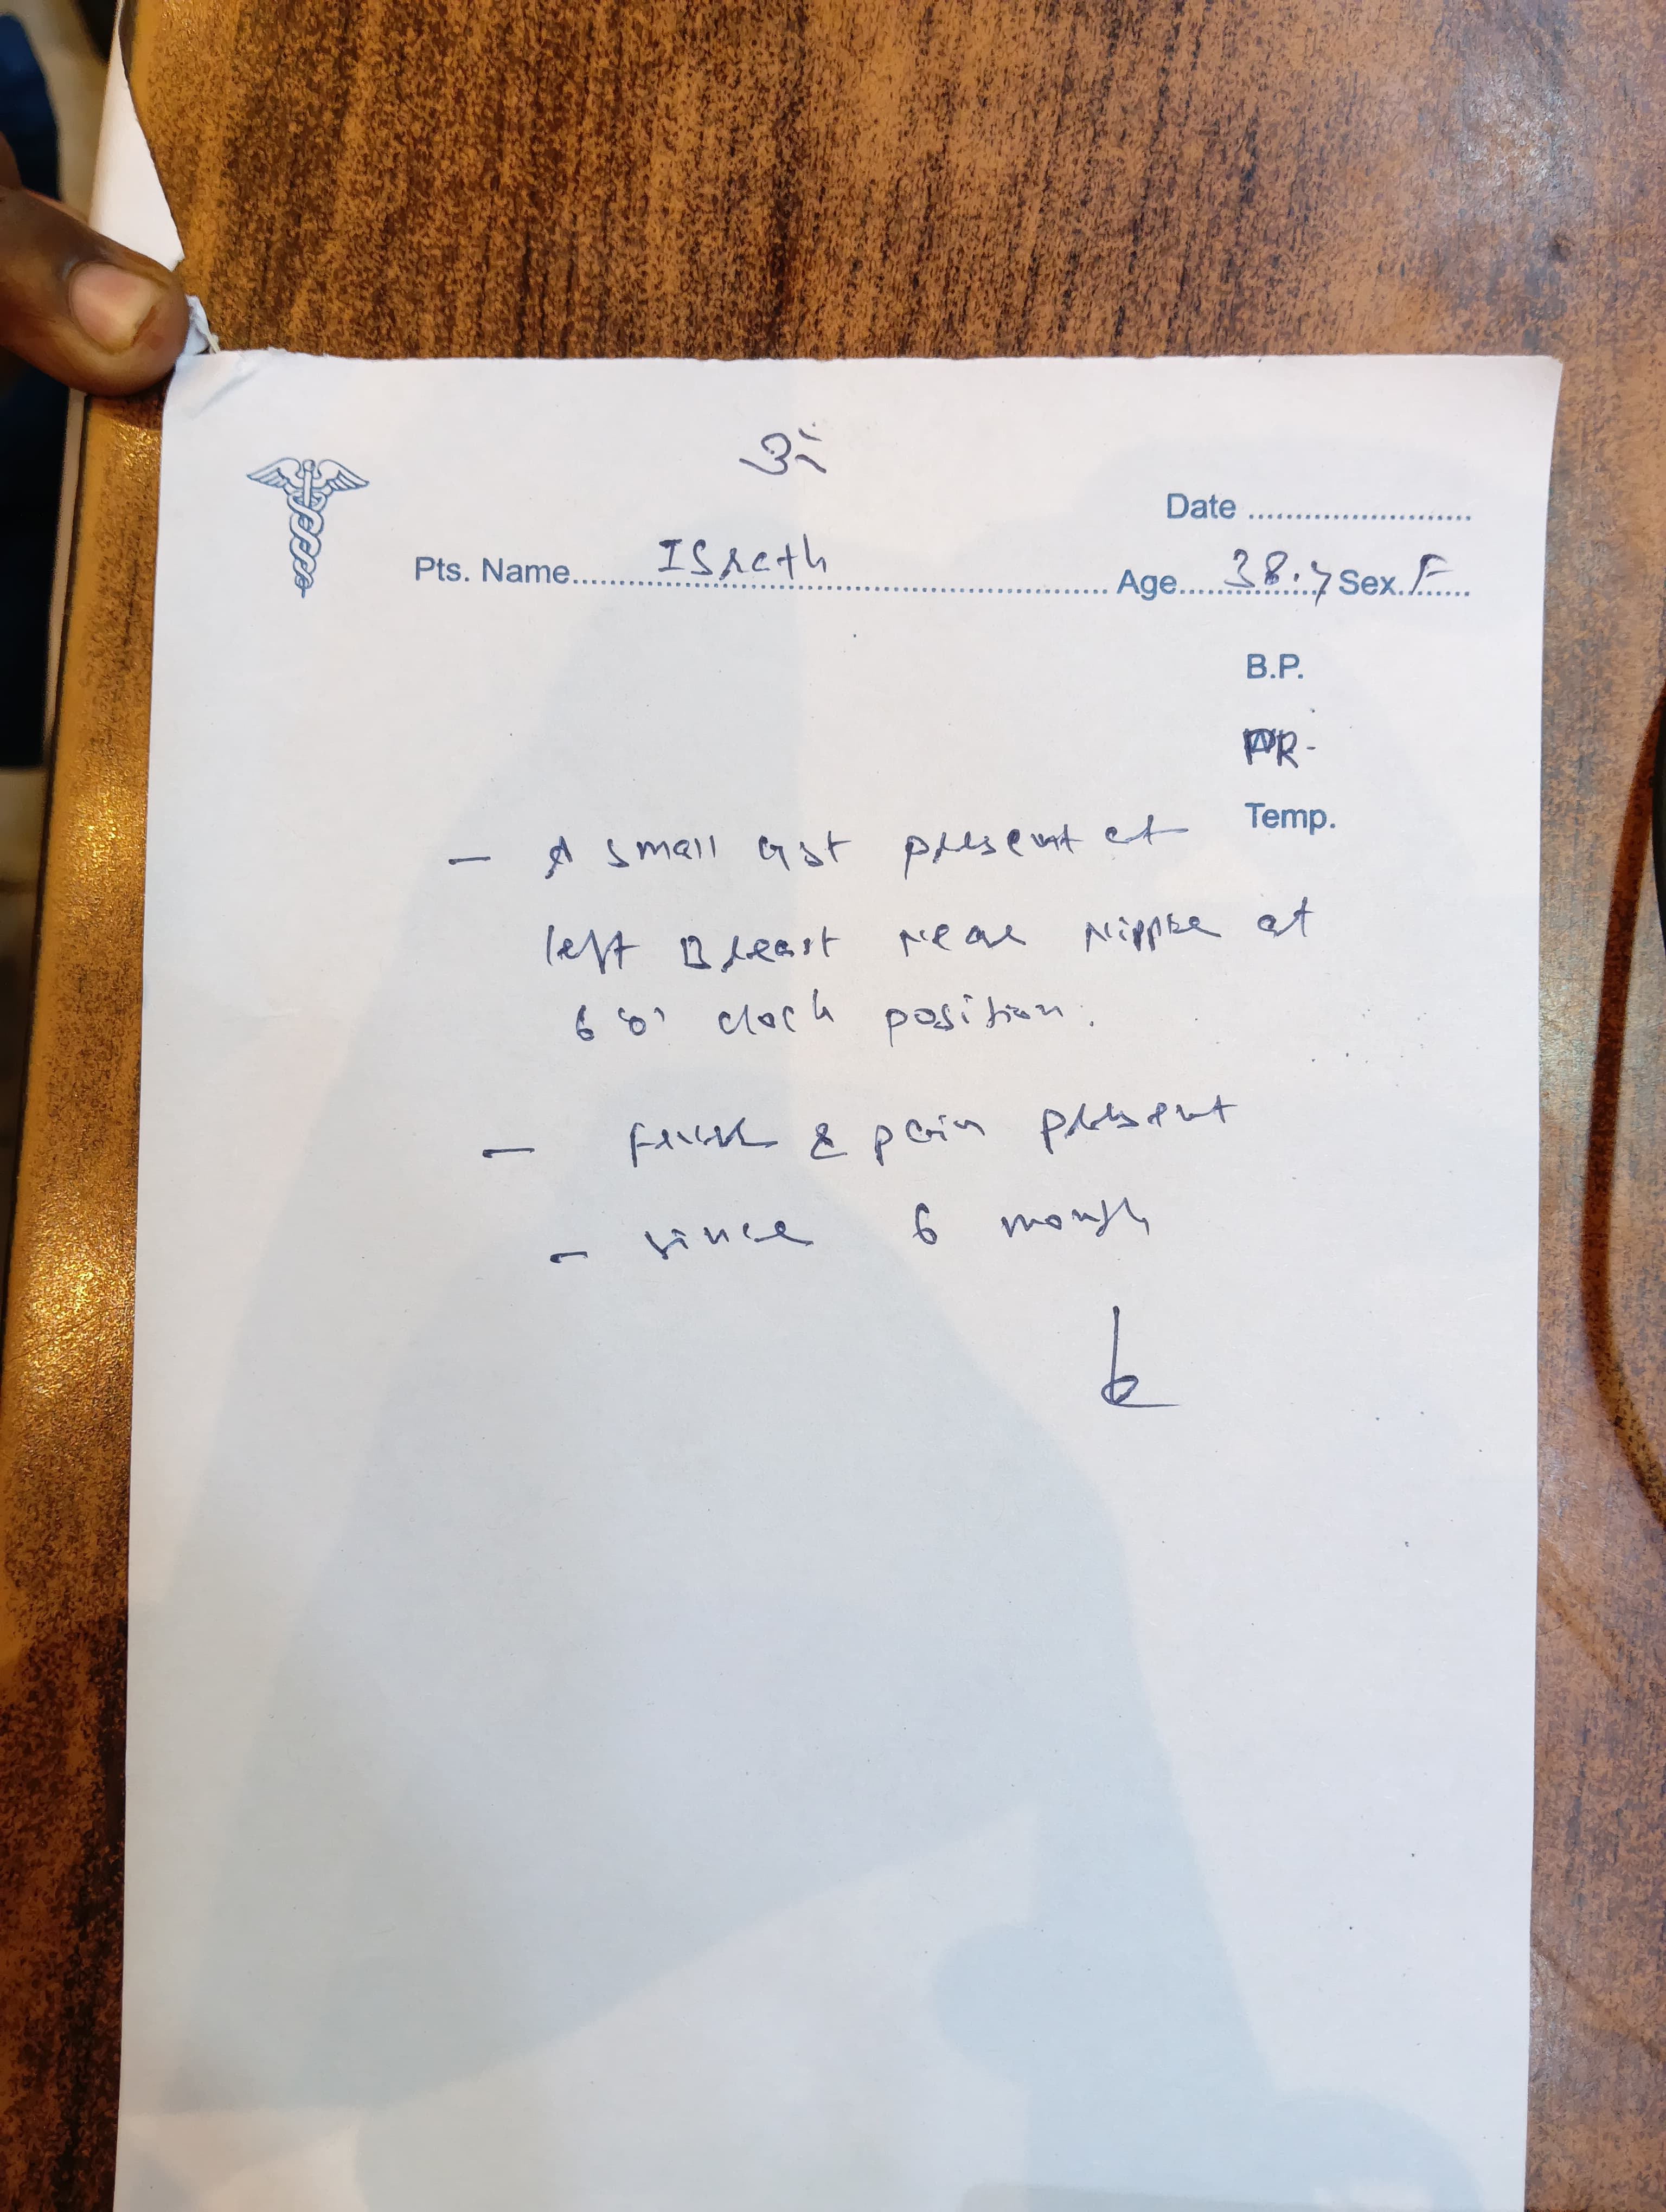 Date ........................
Pts. Name.... Israth .... Age.... 38.y Sex. F ....
B.P.
PR -
Temp.
- A small cyst present at
left Breast near nipple at
6 'o' clock position.
- & pain present
- since 6 month